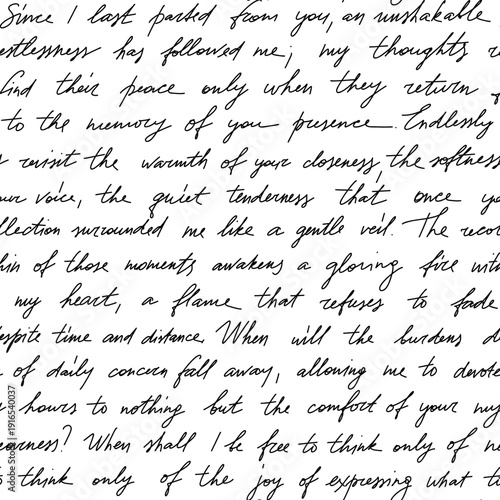 Since I last parted from you, an unshakable
estlessness has followed me; my thoughts r
find their peace only when they return
to the memory of you presence. Endlessly
revisit the warmth of your closeness, the softness
our voice, the quiet tenderness that once yo
llection surrounded me like a gentle veil. The recor
hin of those moments awakens a glowing fire with
my heart, a flame that refuses to fade
espite time and distance. When will the burdens d
of daily concern fall away, allowing me to devote
hours to nothing but the comfort of your my
earness? When shall I be free to think only of ne
think only of the joy of expressing what t
Adobe Stock | #1916540037